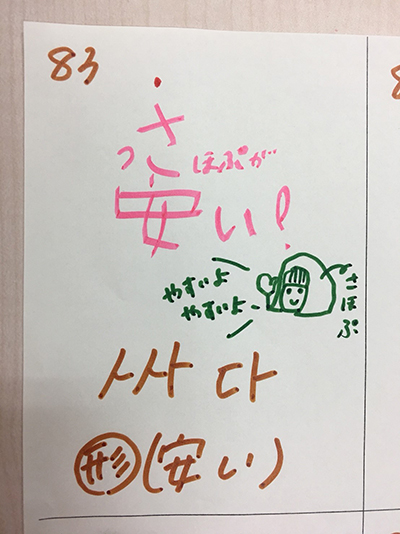 83
っさほぷが
安い!
やすいよ
やすいよ
さほぷ
싸다
形(安い)